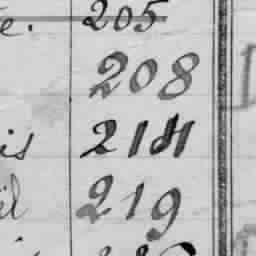 e. 205
208
is 214
el 219